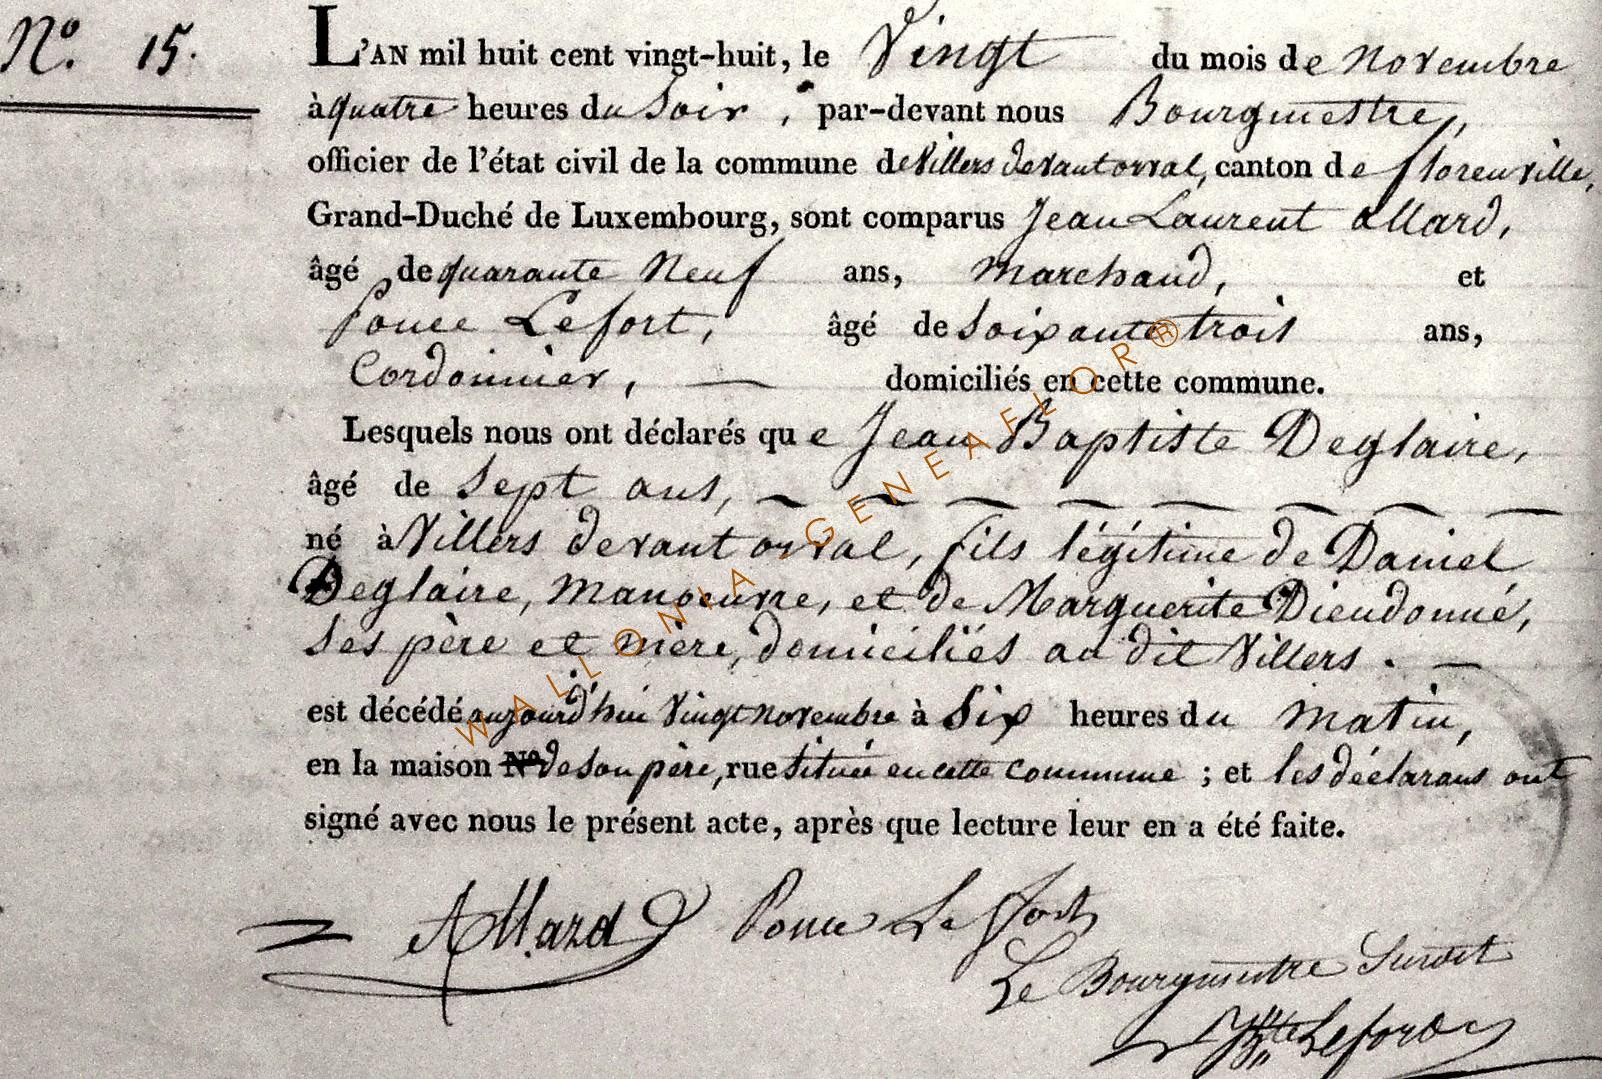 N.º 15.
L'AN mil huit cent vingt-huit, le Vingt du mois de Novembre
à quatre heures du Soir, par-devant nous Bourgmestre,
officier de l'état civil de la commune de Villers devant orval, canton de florenville,
Grand-Duché de Luxembourg, sont comparus Jean Laurent allard,
âgé de quarante Neuf ans, Marchand, et
Ponce Lefort, âgé de Soixante trois ans,
Cordonnier, — domiciliés en cette commune.
Lesquels nous ont déclarés que Jean Baptiste Deglaire,
âgé de Sept ans,
né à Villers devant orval, fils légitime de Daniel
Deglaire, Manoeuvre, et de Marguerite Dieudonné,
Ses père et mère, domiciliés au dit Villers. —
est décédé aujourd'hui Vingt novembre à Six heures du Matin,
en la maison Nº de son père, rue Située en cette commune ; et les déclarans ont
signé avec nous le présent acte, après que lecture leur en a été faite.
Allard Ponce Le fort
Le Bourgmestre Surdit
Lefort
WALLONIA - GENEAFLOR®